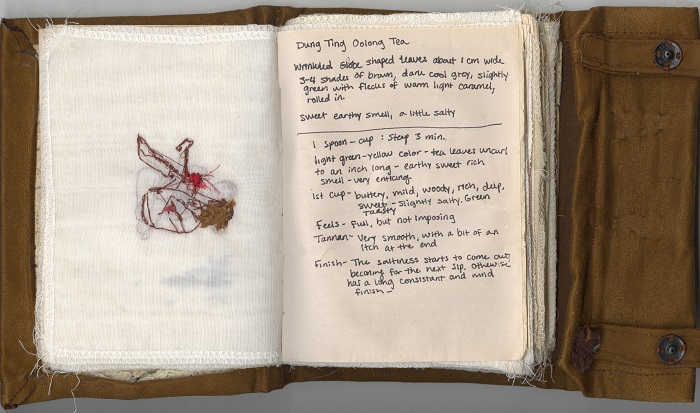 Dung Ting Oolong Tea
Wrinkled Globe shaped leaves about 1 cm wide
3-4 shades of brown, dark cool grey, slightly
green with flecks of warm light caramel,
rolled in.
sweet earthy smell, a little salty
1 spoon - cup : Steep 3 min.
light green-yellow color - tea leaves uncurl
to an inch long - earthy sweet rich
smell - very enticing.
1st cup - buttery, mild, woody, rich, deep,
sweet - slightly salty. Green
toasty
Feels - full, but not imposing
Tannan - very smooth, with a bit of an
itch at the end
Finish - The saltiness starts to come out,
beconing for the next sip. Otherwise
has a long consistant and mild
finish -